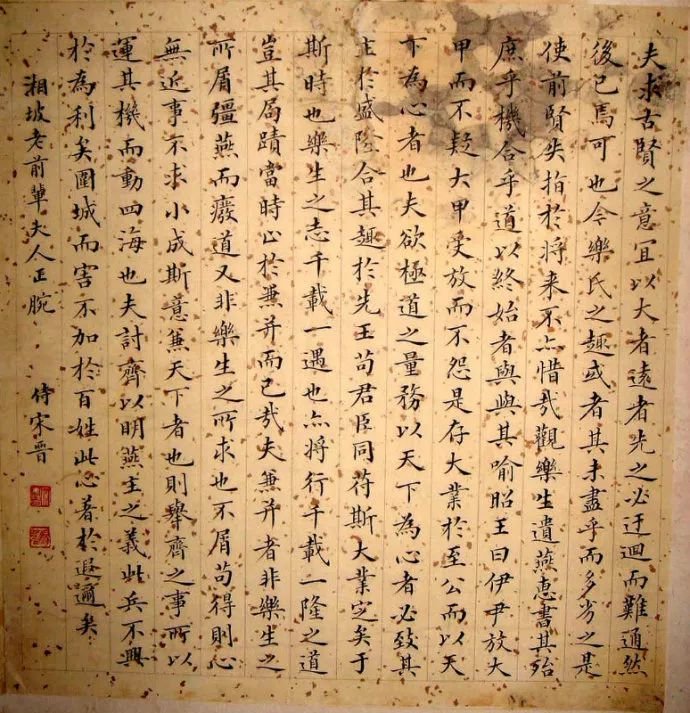 夫求古賢之意宜以大者遠者先之必迂迴而難通然
後已焉可也今樂氏之趣或者其未盡乎而多劣之是
使前賢失指於将来不亦惜哉觀樂生遺燕惠書其殆
庶乎機合乎道以終始者與與其喻昭王曰伊尹放大
甲而不疑大甲受放而不怨是存大業於至公而以天
下為心者也夫欲極道之量務以天下為心者必致其
主於盛隆合其趣於先王苟君臣同符斯大業定矣于
斯時也樂生之志千載一遇也亦将行千載一隆之道
豈其局蹟當時止於兼并而已哉夫兼并者非樂生之
所屑彊燕而癈道又非樂生之所求也不屑苟得則心
無近事不求小成斯意兼天下者也則舉齊之事所以
運其機而動四海也夫討齊以明燕主之義此兵不興
於為利矣圍城而害不加於百姓此心著於遐邇矣
湘坡老前輩夫人正腕
侍宋晋